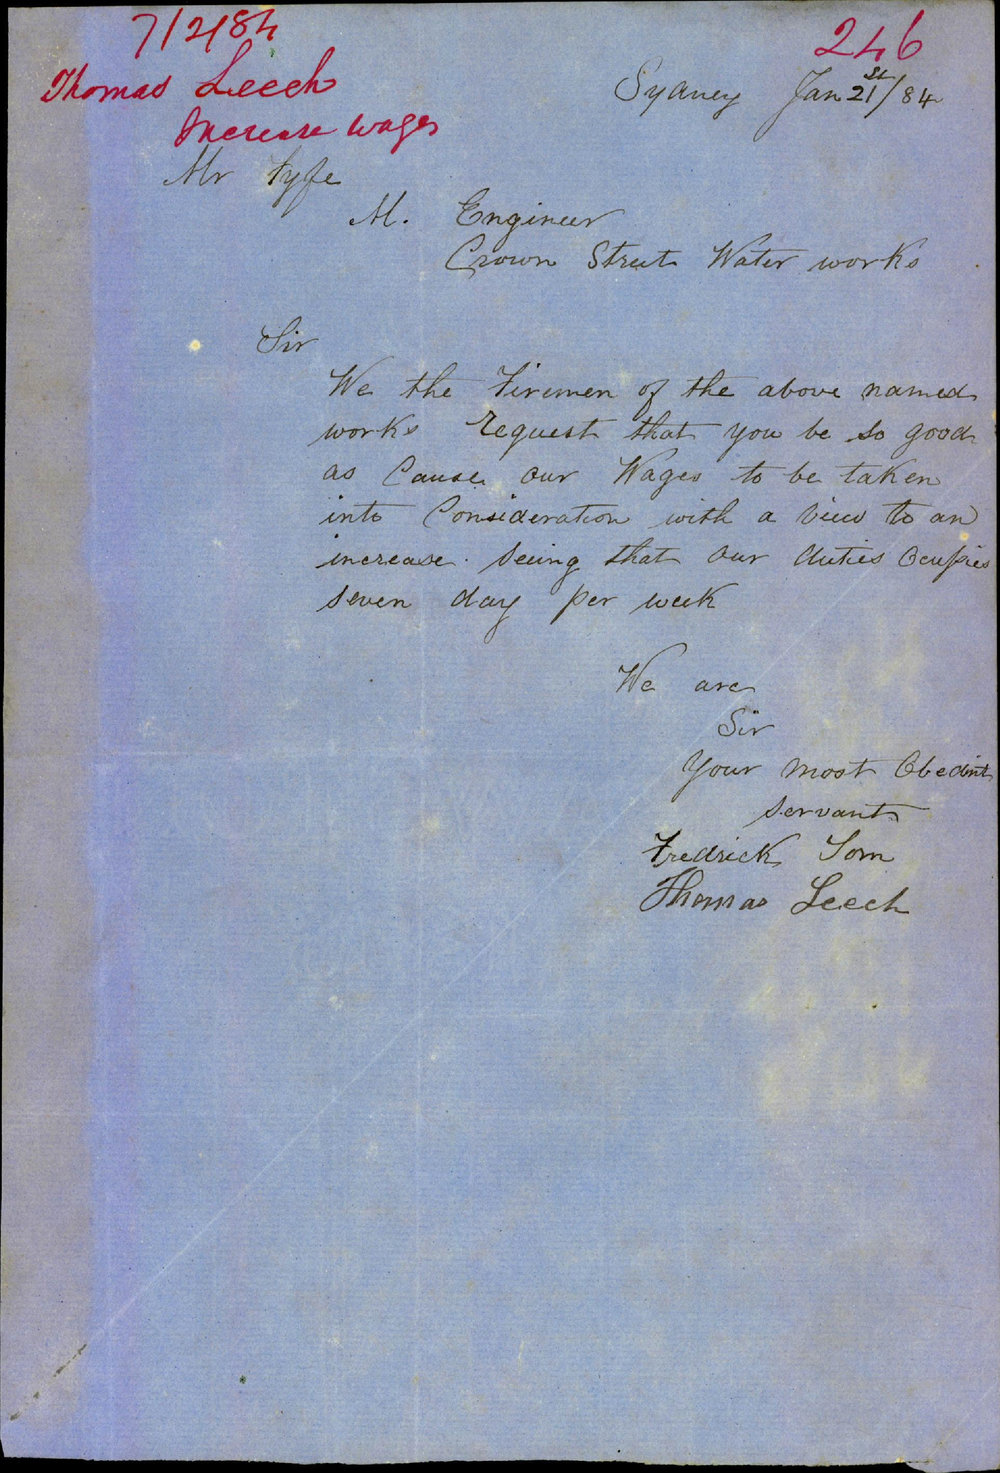 7/2/84
246
Thomas Leech
Increase wages
Sydney Jan 21st/84
Mr Fyfe
M. Engineer
Crown Street Water works
Sir
We the Firemen of the above named
works request that you be so good
as Cause our Wages to be taken
into Consideration with a view to an
increase. Seeing that our duties Ocupies
seven day per week
We are
Sir
Your most Obedint
servant
Fredrick Tom
Thomas Leech